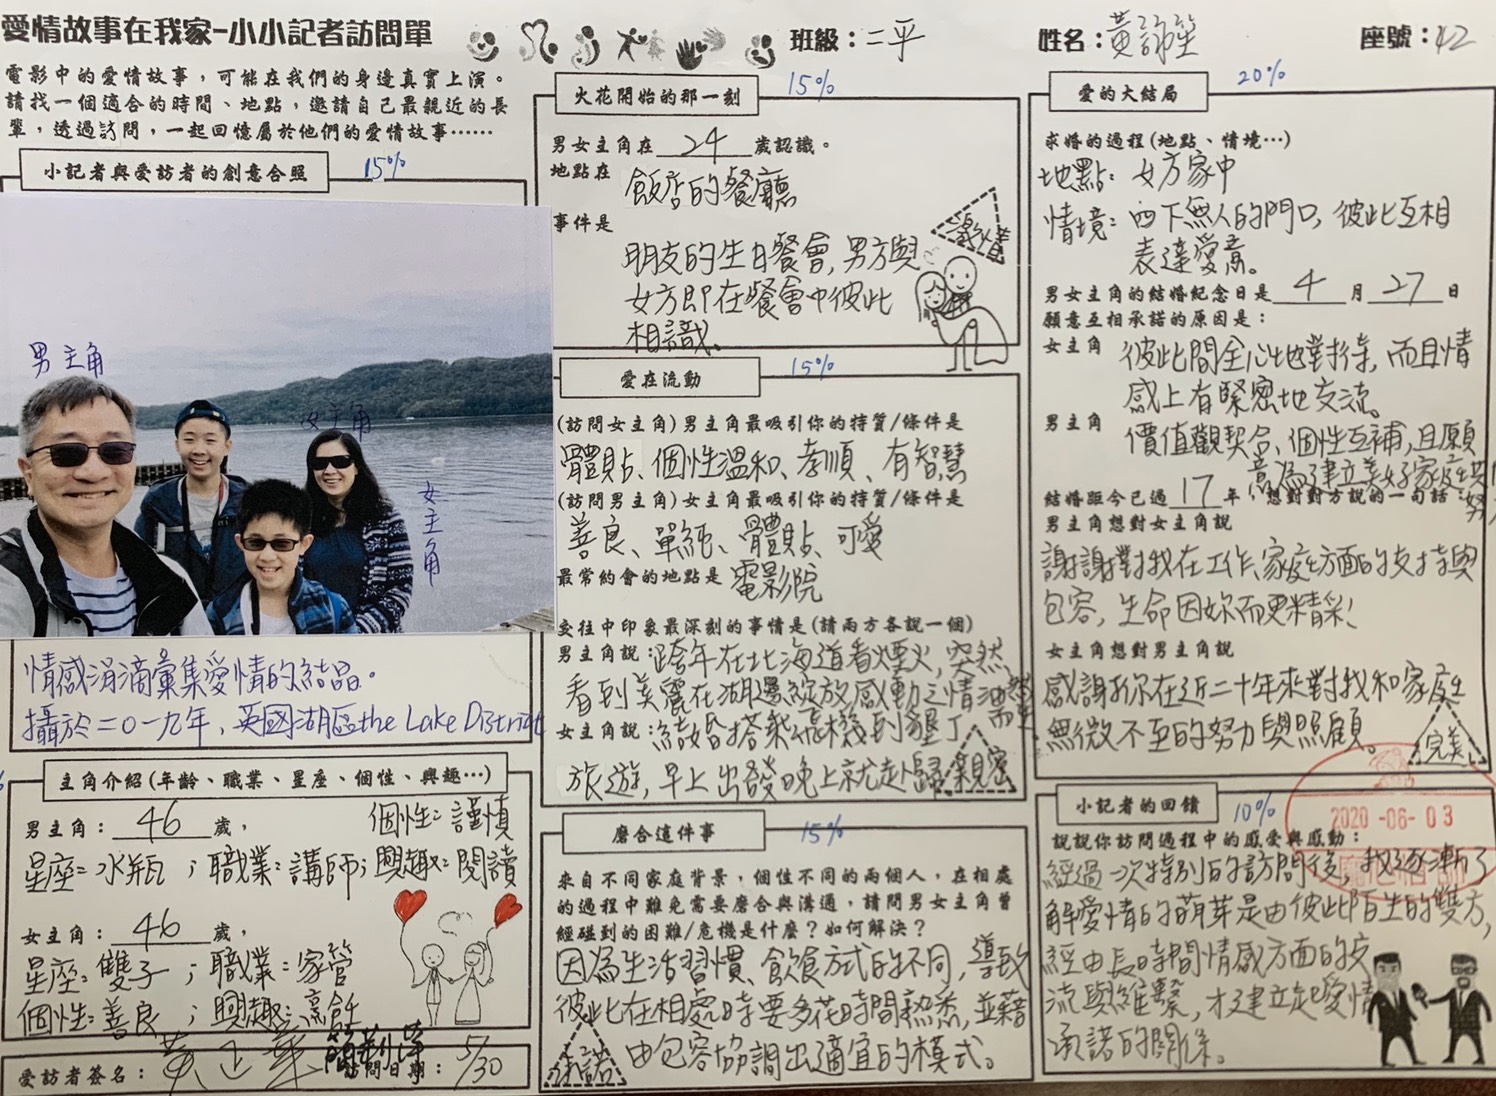 愛情故事在我家-小小記者訪問單
班級：二平
姓名：黃詠笙
座號：42
電影中的愛情故事，可能在我們的身邊真實上演。
請找一個適合的時間、地點，邀請自己最親近的長
輩，透過訪問，一起回憶屬於他們的愛情故事……
小記者與受訪者的創意合照
15%
男主角
女主角
女主角
情感涓滴彙集愛情的結晶。
攝於二〇一九年，英國湖區the Lake District
主角介紹(年齡、職業、星座、個性、興趣…)
男主角：46歲，
個性：謹慎
星座：水瓶；職業：講師；興趣：閱讀
女主角：46歲，
星座：雙子；職業：家管
個性：善良；興趣：烹飪
受訪者簽名：
訪問日期：5/30
火花開始的那一刻
15%
男女主角在24歲認識。
地點在
飯店的餐廳
事件是
激情
朋友的生日餐會，男方與
女方即在餐會中彼此
相識。
愛在流動
15%
(訪問女主角)男主角最吸引你的特質/條件是
體貼、個性溫和、孝順、有智慧
(訪問男主角)女主角最吸引你的特質/條件是
善良、單純、體貼、可愛
最常約會的地點是電影院
交往中印象最深刻的事情是(請兩方各說一個)
男主角說：跨年在北海道看煙火，突然
看到美麗在湖邊綻放感動之情油然
而生
女主角說：結婚搭乘飛機到墾丁
旅遊，早上出發晚上就走歸
親密
磨合這件事
15%
來自不同家庭背景，個性不同的兩個人，在相處
的過程中難免需要磨合與溝通，請問男女主角曾
經碰到的困難/危機是什麼？如何解決？
因為生活習慣、飲食方式的不同，導致
彼此在相處時要多花時間熟悉，並藉
由包容協調出適宜的模式。
承諾
愛的大結局
20%
求婚的過程(地點、情境…)
地點：女方家中
情境：四下無人的門口，彼此互相
表達愛意。
男女主角的結婚紀念日是4月27日
願意互相承諾的原因是：
女主角
彼此間全心地對待，而且情
感上有緊密地交流。
男主角
價值觀契合、個性互補，且願
意為建立美好家庭共同
努力
結婚距今已過17年，想對對方說的一句話：
男主角想對女主角說
謝謝對我在工作、家庭方面的支持與
包容，生命因妳而更精彩！
女主角想對男主角說
感謝你在近二十年來對我和家庭
無微不至的努力與照顧。
完美
小記者的回饋
10%
2020-06-03
說說你訪問過程中的感受與感動：
經過一次特別的訪問後，我逐漸了
解愛情的萌芽是由彼此陌生的雙方，
經由長時間情感方面的交
流與維繫，才建立起愛情
承諾的關係。